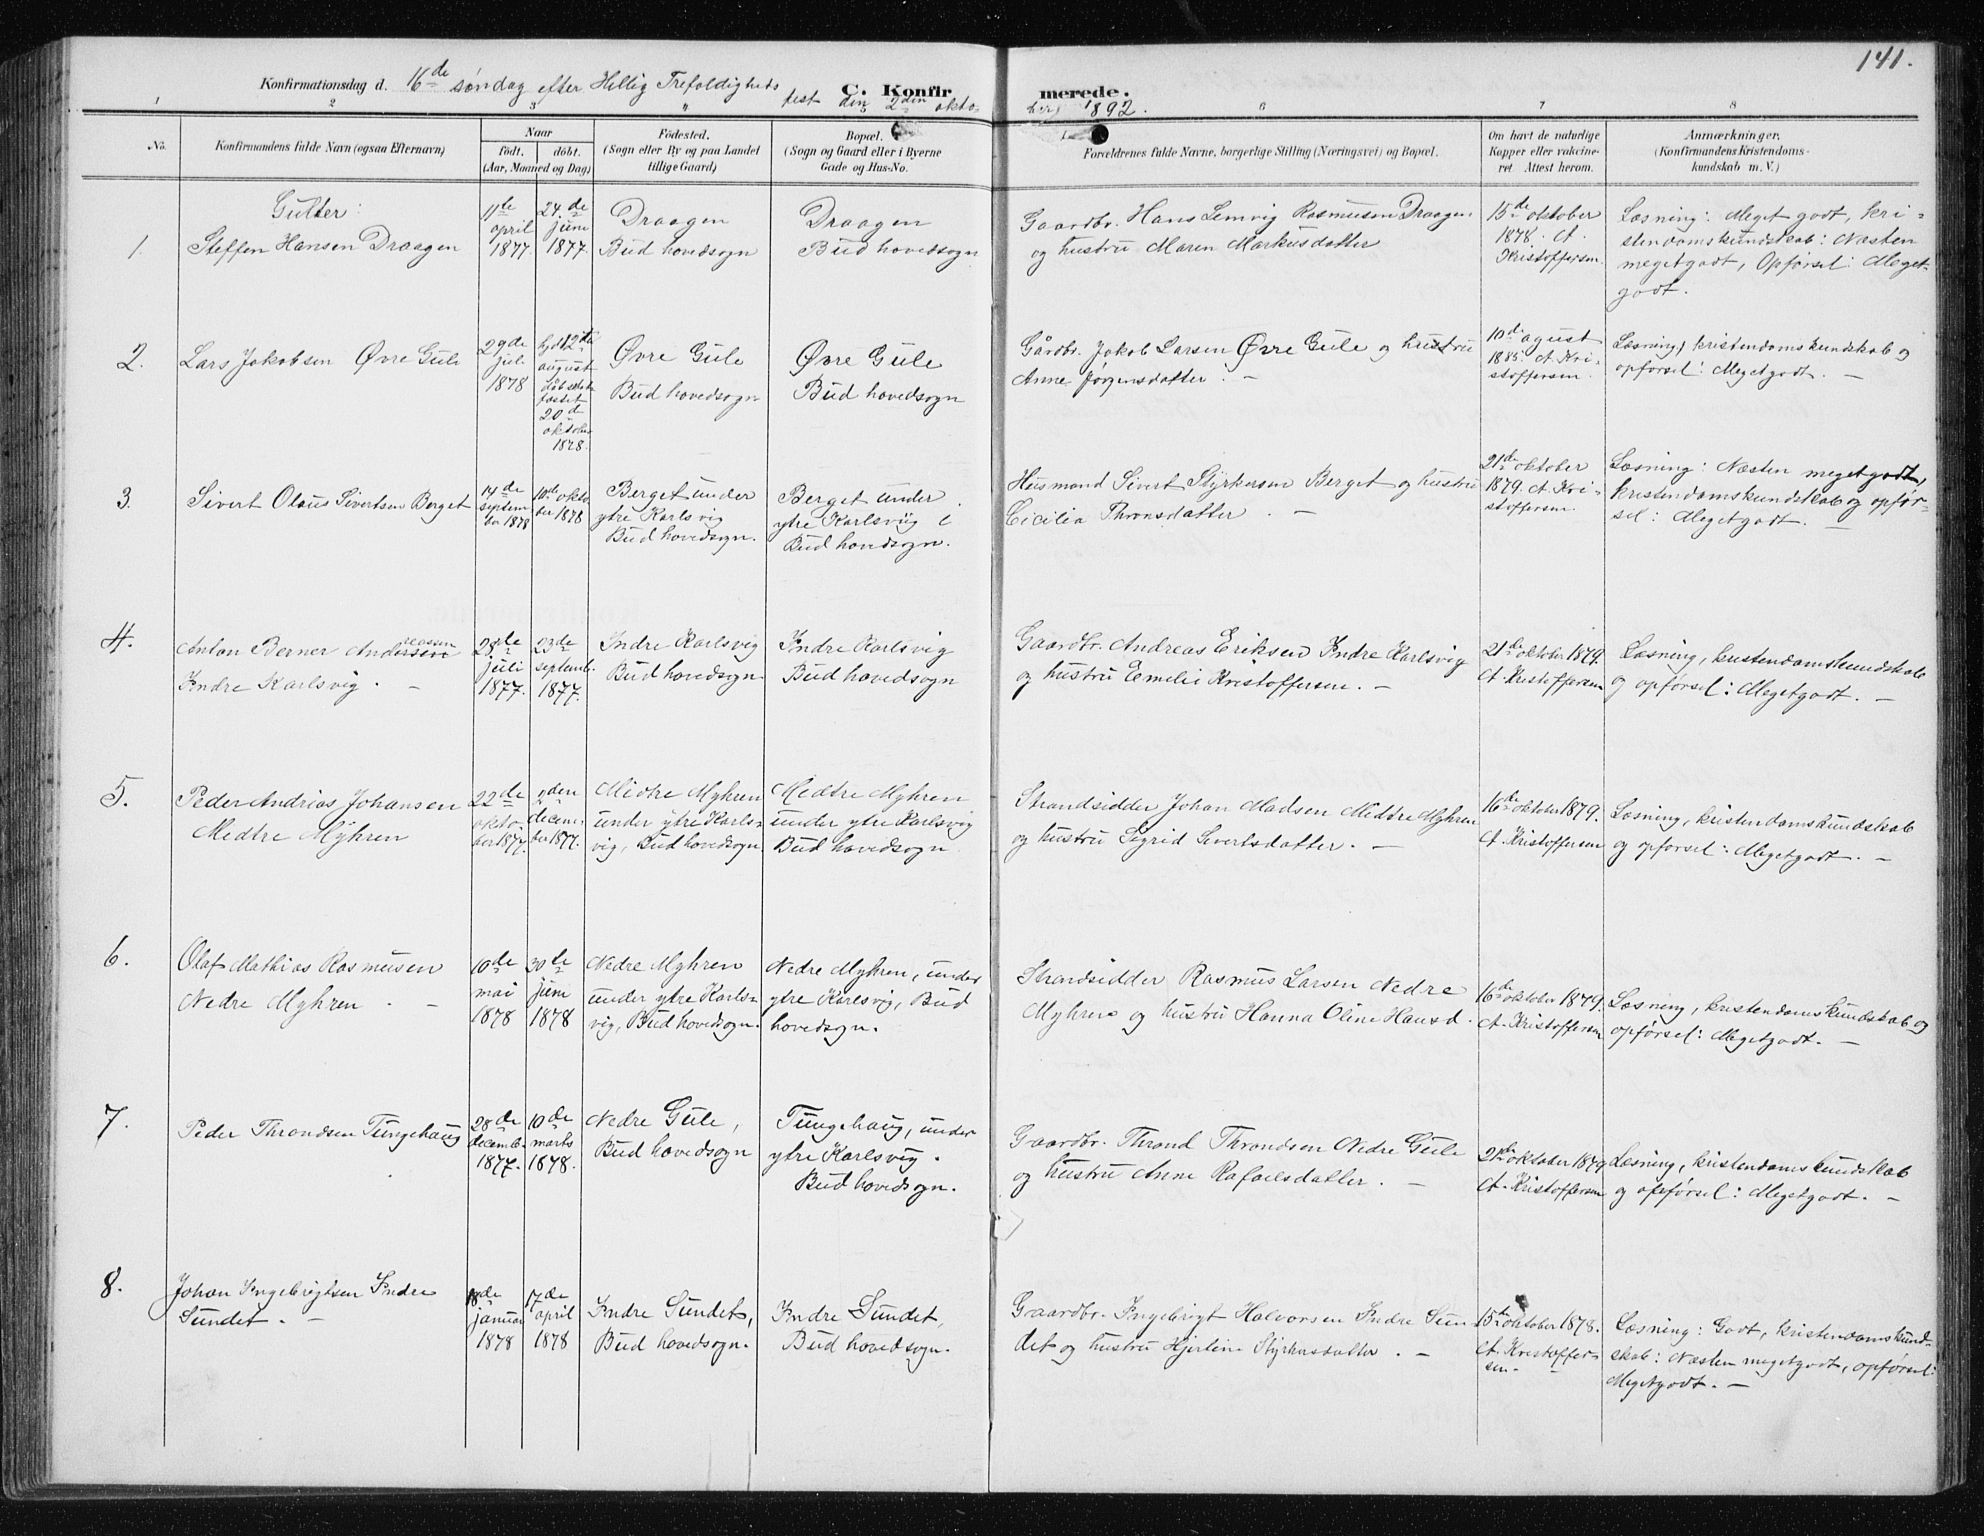 141.
Konfirmationsdag d. 16de søndag efter Hellig Trefoldigheds fest den 2den okto- C. Konfir merede. ber 1892.
1 2 3 4 6 7 8
No.
Konfirmandens fulde Navn (ogsaa Efternavn)
Naar
født. døbt.
(Aar, Maaned og Dag)
Fødested.
(Sogn eller By og paa Landet
tillige Gaard)
Bopæl.
(Sogn og Gaard eller i Byerne
Gade og Hus-No.
Forældrenes fulde Navne, borgerlige Stilling (Næringsvei) og Bopæl.
Om havt de naturlige
Kopper eller vakcine-
ret. Attest herom.
Anmærkninger.
(Konfirmandens Kristendoms-
kundskab m. V.)
Gutter:
1.
Steffen Hansen Draagen
11te
april
1877
24de
juni
1877.
Draagen
Bud hovedsogn
Draagen
Bud hovedsogn
Gaardbr. Hans Lemvig Rasmusen Draagen
og hustru Maren Markusdatter
15de oktober
1878. A.
Kristoffersen.
Læsning: Meget godt, kri-
stendomskundskab: Næsten
megetgodt, Opførsel: Meget-
godt.
2.
Lars Jakobsen Øvre Gule
29de
juli
1878
hjdt 12te
august
døb stad-
fæstet
20de
oktober
1878.
Øvre Gule
Bud hovedsogn
Øvre Gule
Bud hovedsogn
Gårdbr. Jakob Larsen Øvre Gule og hustru
Anne Jørgensdatter. —
10de agust
1885. A. Kri-
stoffersen.
Læsning, kristendomskundskab og
opførsel: Megetgodt. —
3.
Sivert Olaus Sivertsen Berget
14de
septem-
ber 1878
10de okto
ber 1878
Berget under
ytre Karlsvig
Bud hovedsogn.
Berget under
ytre Karlsviig i
Bud hovedsogn.
Husmand Sivert Styrkersen Berget og hustru
Cicilia Thronsdatter. —
21de oktober
1879. A. Kri-
stoffersen.
Læsning: Næsten megetgodt,
kristendomskundskab og opfør-
sel: Megetgodt. —
4.
Anton Berner Andersen reassen
Indre Karlsvig. —
28de
juli
1877.
23de
septemb.
1877.
Indre Karlsvig
Bud hovedsogn.
Indre Karlsvig
Bud hovedsogn
Gaardbr. Andreas Eriksen Indre Karlsvig
og hustru Emelie Kristoffersen. —
21de oktober 1879.
A. Kristoffersen
Læsning, kristendomskundskab
og opførsel: Megetgodt. —
5.
Peder Andrias Johansen
Medtre Myhren
22de
okto-
ber 1877.
2den
decem-
ber 1877.
Midtre Myhren
under ytre Karls-
vig, Bud hovedsogn
Medtre Myhren
under ytre Karlsvig
Bud hovedsogn
Strandsidder Johan Madsen Midtre Myhren
og hustru Sigrid Sivertsdatter. —
16de oktober 1879.
A. Kristoffersen
Læsning, kristendomskundskab
og opførsel: Megetgodt. —
6.
Olaf Mathias Rasmusen
Nedre Myhren. —
10de
mai
1878
30te
juni
1878
Nedre Myhren
under ytre Karls-
vig, Bud hovedsogn.
Nedre Myhren, under
ytre Karlsvig, Bud
hovedsogn.
Strandsidder Rasmus Larsen Nedre
Myhren og hustru Hanna Oline Hansd.
16de oktober 1879.
A. Kristoffersen
Læsning, kristendomskundskab og
opførsel: Megetgodt. —
7.
Peder Throndsen Tungehaug
28de
decemb.
1877.
10de
marts
1878.
Nedre Gule,
Bud hovedsogn
Tungehaug, under
ytre Karlsvig.
Bud hovedsogn.
Gaardbr. Thrond Throndsen Nedre Gule
og hustru Anne Rafaelsdatter. —
21de oktober 1879
A. Kristoffersen
Læsning, kristendomskundskab
og opførsel: Megetgodt. —
8.
Johan Ingebrigtsen Indre
Sundet. —
18de
januar
1878
17de
april
1878
Indre Sundet,
Bud hovedsogn.
Indre Sundet,
Bud hovedsogn.
Gaardbr. Ingebrigt Halvorsen Indre Sun
det og hustru Hjerline Styrkersdatter. —
15de oktober 1878.
A. Kristoffer-
sen.
Læsning: Godt, kristendomskund-
skab: Næsten megetgodt, opførsel:
Megetgodt. —